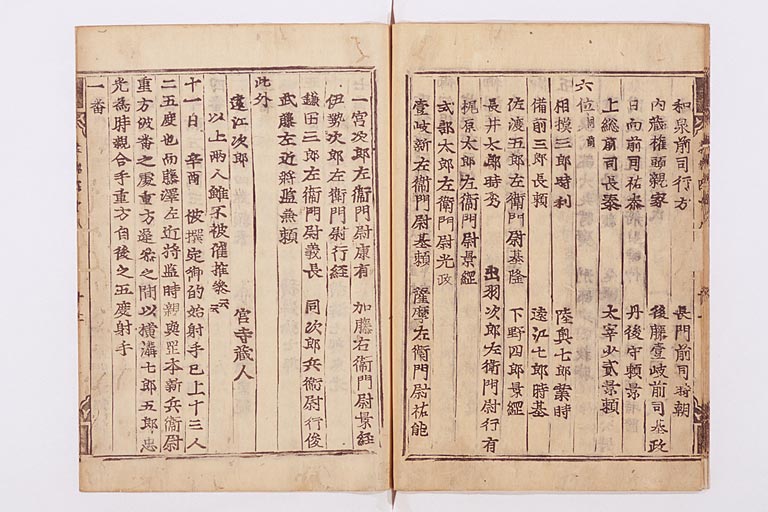 和泉前司行方 長門前司時朝
内蔵権頭親家 後藤壹岐前司基政
日向前司祐泰 丹後守頼景
上総前司長泰 太宰少貳景頼
六位
相摸三郎時利 陸奥七郎業時
備前三郎長頼 遠江七郎時基
佐渡五郎左衛門尉基隆 下野四郎景經
長井太郎時秀 出羽次郎左衛門尉行有
梶原太郎左衛門尉景經
式部太郎左衛門尉光政
壹岐新左衛門尉基頼 薩摩左衛門尉祐能
一宮次郎左衛門尉康有 加藤右衛門尉景經
伊勢次郎左衛門尉行經
鎌田三郎左衛門尉義長 同次郎兵衛尉行俊
武藤左近將監兼頼
此外
遠江次郎 宮寺蔵人
以上兩人雖不被催推參
十一日 辛酉 被撰定御的始射手已上十三人
二五度也而藤澤左近将監時親與早本新兵衛尉
重方被番之處重方遅參之間以横溝七郎五郎忠
光為時親合手重方自後之五度射手
一番